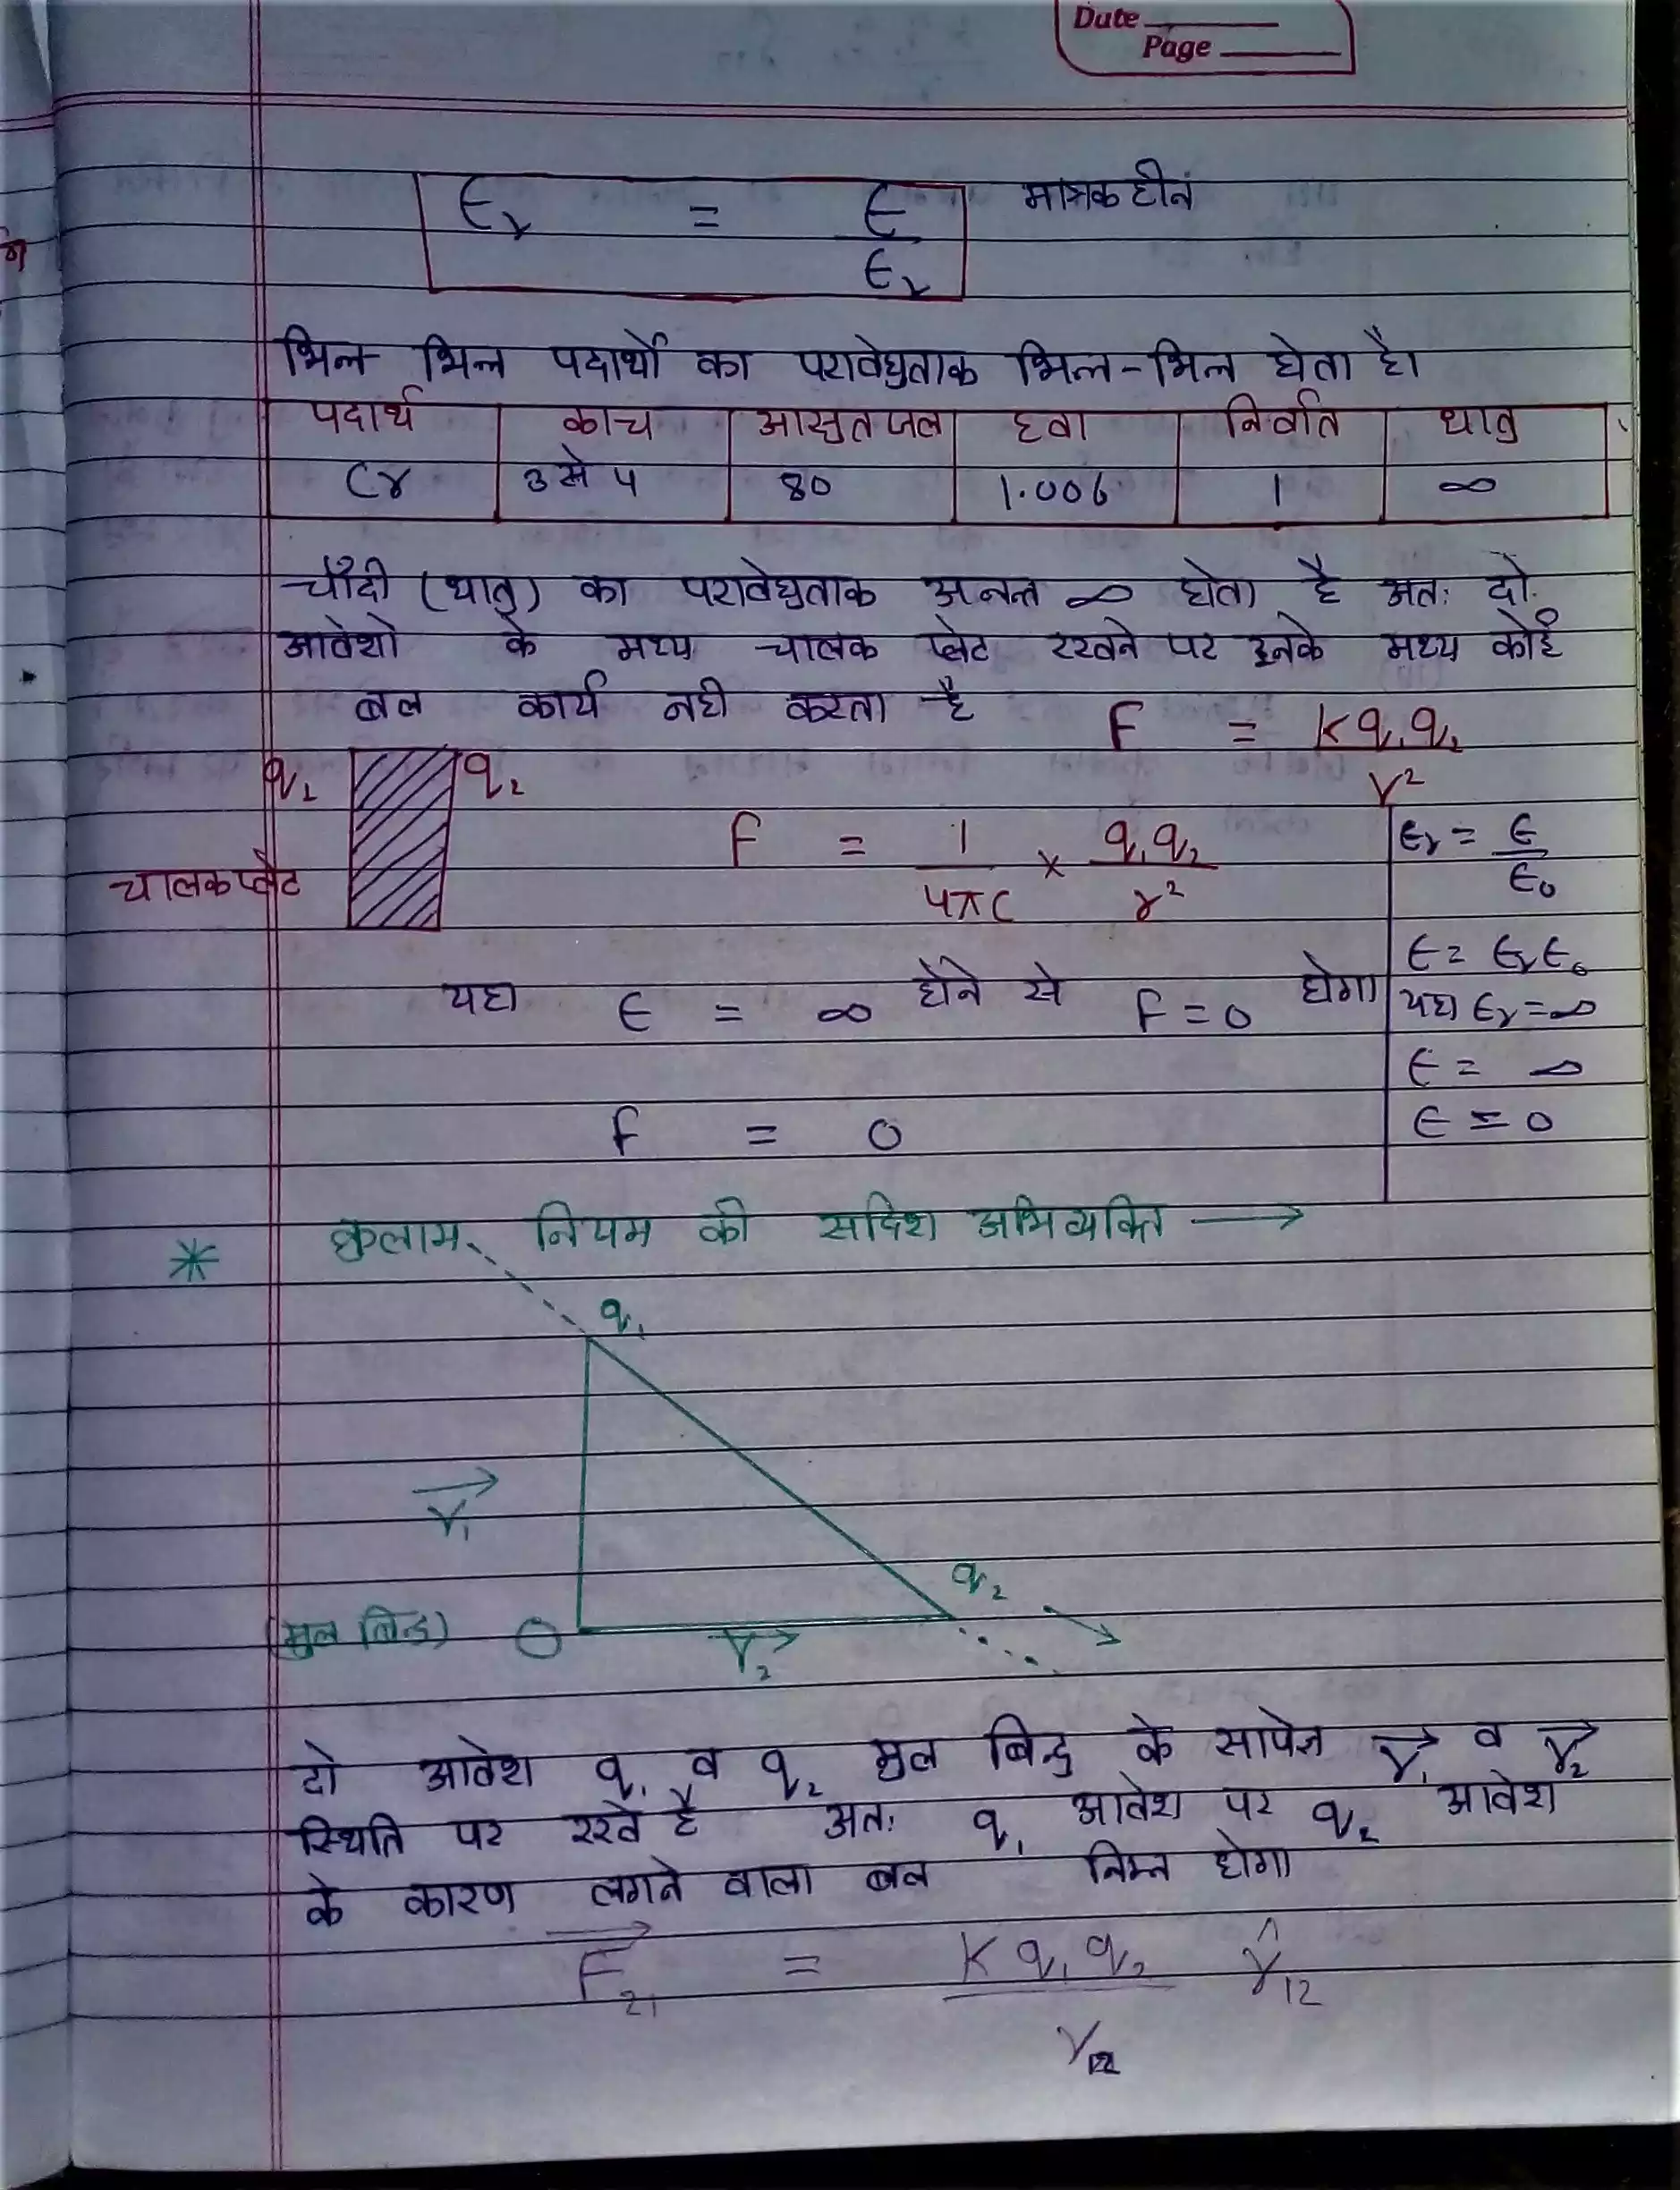 Date
Page
ϵr = ϵ / ϵr मात्रकहीन
भिन्न भिन्न पदार्थो का परावेधुताक भिन्न-भिन्न होता है।
पदार्थ काच आसुतजल हवा निर्वात धातु
ϵr 3 से 4 80 1.006 1 ∞
चाँदी (धातु) का परावेधुताक अनन्त ∞ होता है अतः दो
आवेशो के मध्य चालक प्लेट रखने पर उनके मध्य कोई
बल कार्य नही करता है F = Kq₁q₂ / r²
q₁ q₂
F = 1 / 4πϵ × q₁q₂ / r²
ϵr = ϵ / ϵ₀
चालक प्लेट
ϵ = ϵrϵ₀
यहा ϵ = ∞ होने से F = 0 होगा
यहा ϵr = ∞
ϵ = ∞
F = 0
ϵ = 0
* कुलाम नियम की सदिश अभिव्यक्ति →
q₁
r₁→
q₂
(मुल बिन्दु) O
r₂→
दो आवेश q₁ व q₂ मुल बिन्दु के सापेक्ष r₁→ व r₂→
स्थिति पर रखे है अतः q₁ आवेश पर q₂ आवेश
के कारण लगने वाला बल निम्न होगा
F₂₁→ = Kq₁q₂ / r₁₂ r̂₁₂